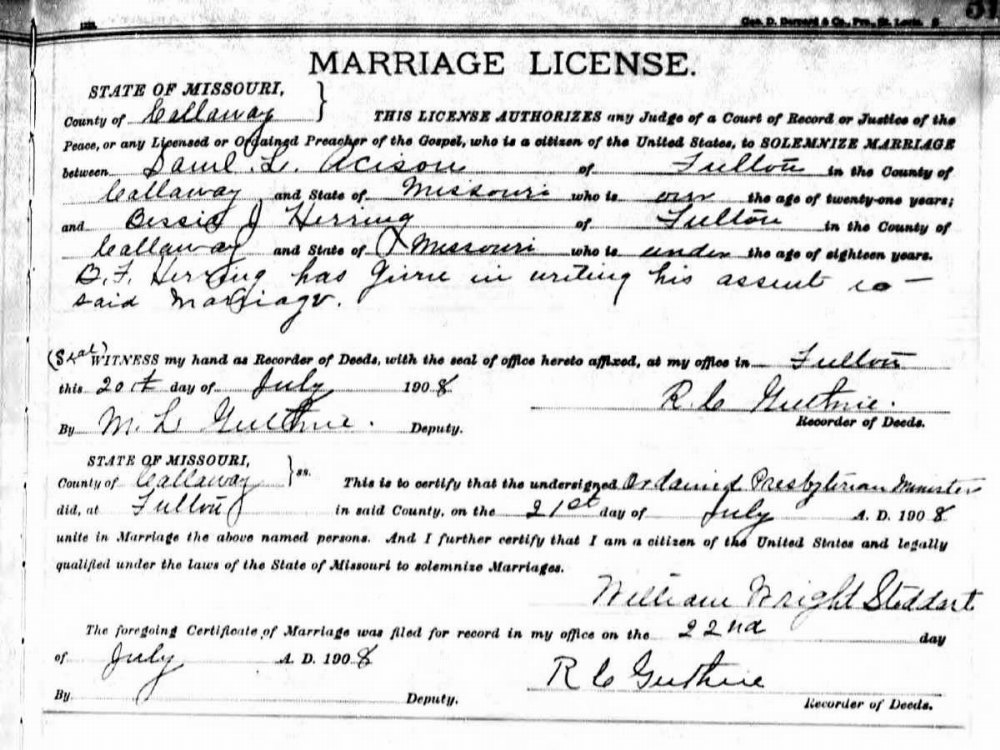 Geo. D. Barnard & Co., Pro., St. Louis
MARRIAGE LICENSE.
STATE OF MISSOURI,
County of Callaway } THIS LICENSE AUTHORIZES any Judge of a Court of Record or Justice of the
Peace, or any Licensed or Ordained Preacher of the Gospel, who is a citizen of the United States, to SOLEMNIZE MARRIAGE
between Saml. L. Acison of Fulton in the County of
Callaway and State of Missouri who is over the age of twenty-one years;
and Bessie J Herring of Fulton in the County of
Callaway and State of Missouri who is under the age of eighteen years.
B. F. Herring has given in writing his assent to
said marriage.
(Seal) WITNESS my hand as Recorder of Deeds, with the seal of office hereto affixed, at my office in Fulton
this 20th day of July 1908
R. C Guthrie.
By M. L Guthrie. Deputy. Recorder of Deeds.
STATE OF MISSOURI,
County of Callaway } ss. This is to certify that the undersigned Ordained Presbyterian Minister
did, at Fulton in said County, on the 21st day of July A. D. 1908
unite in Marriage the above named persons. And I further certify that I am a citizen of the United States and legally
qualified under the laws of the State of Missouri to solemnize Marriages.
William Wright Stoddart
The foregoing Certificate of Marriage was filed for record in my office on the 22nd day
of July A. D. 1908 R C Guthrie
By Deputy. Recorder of Deeds.